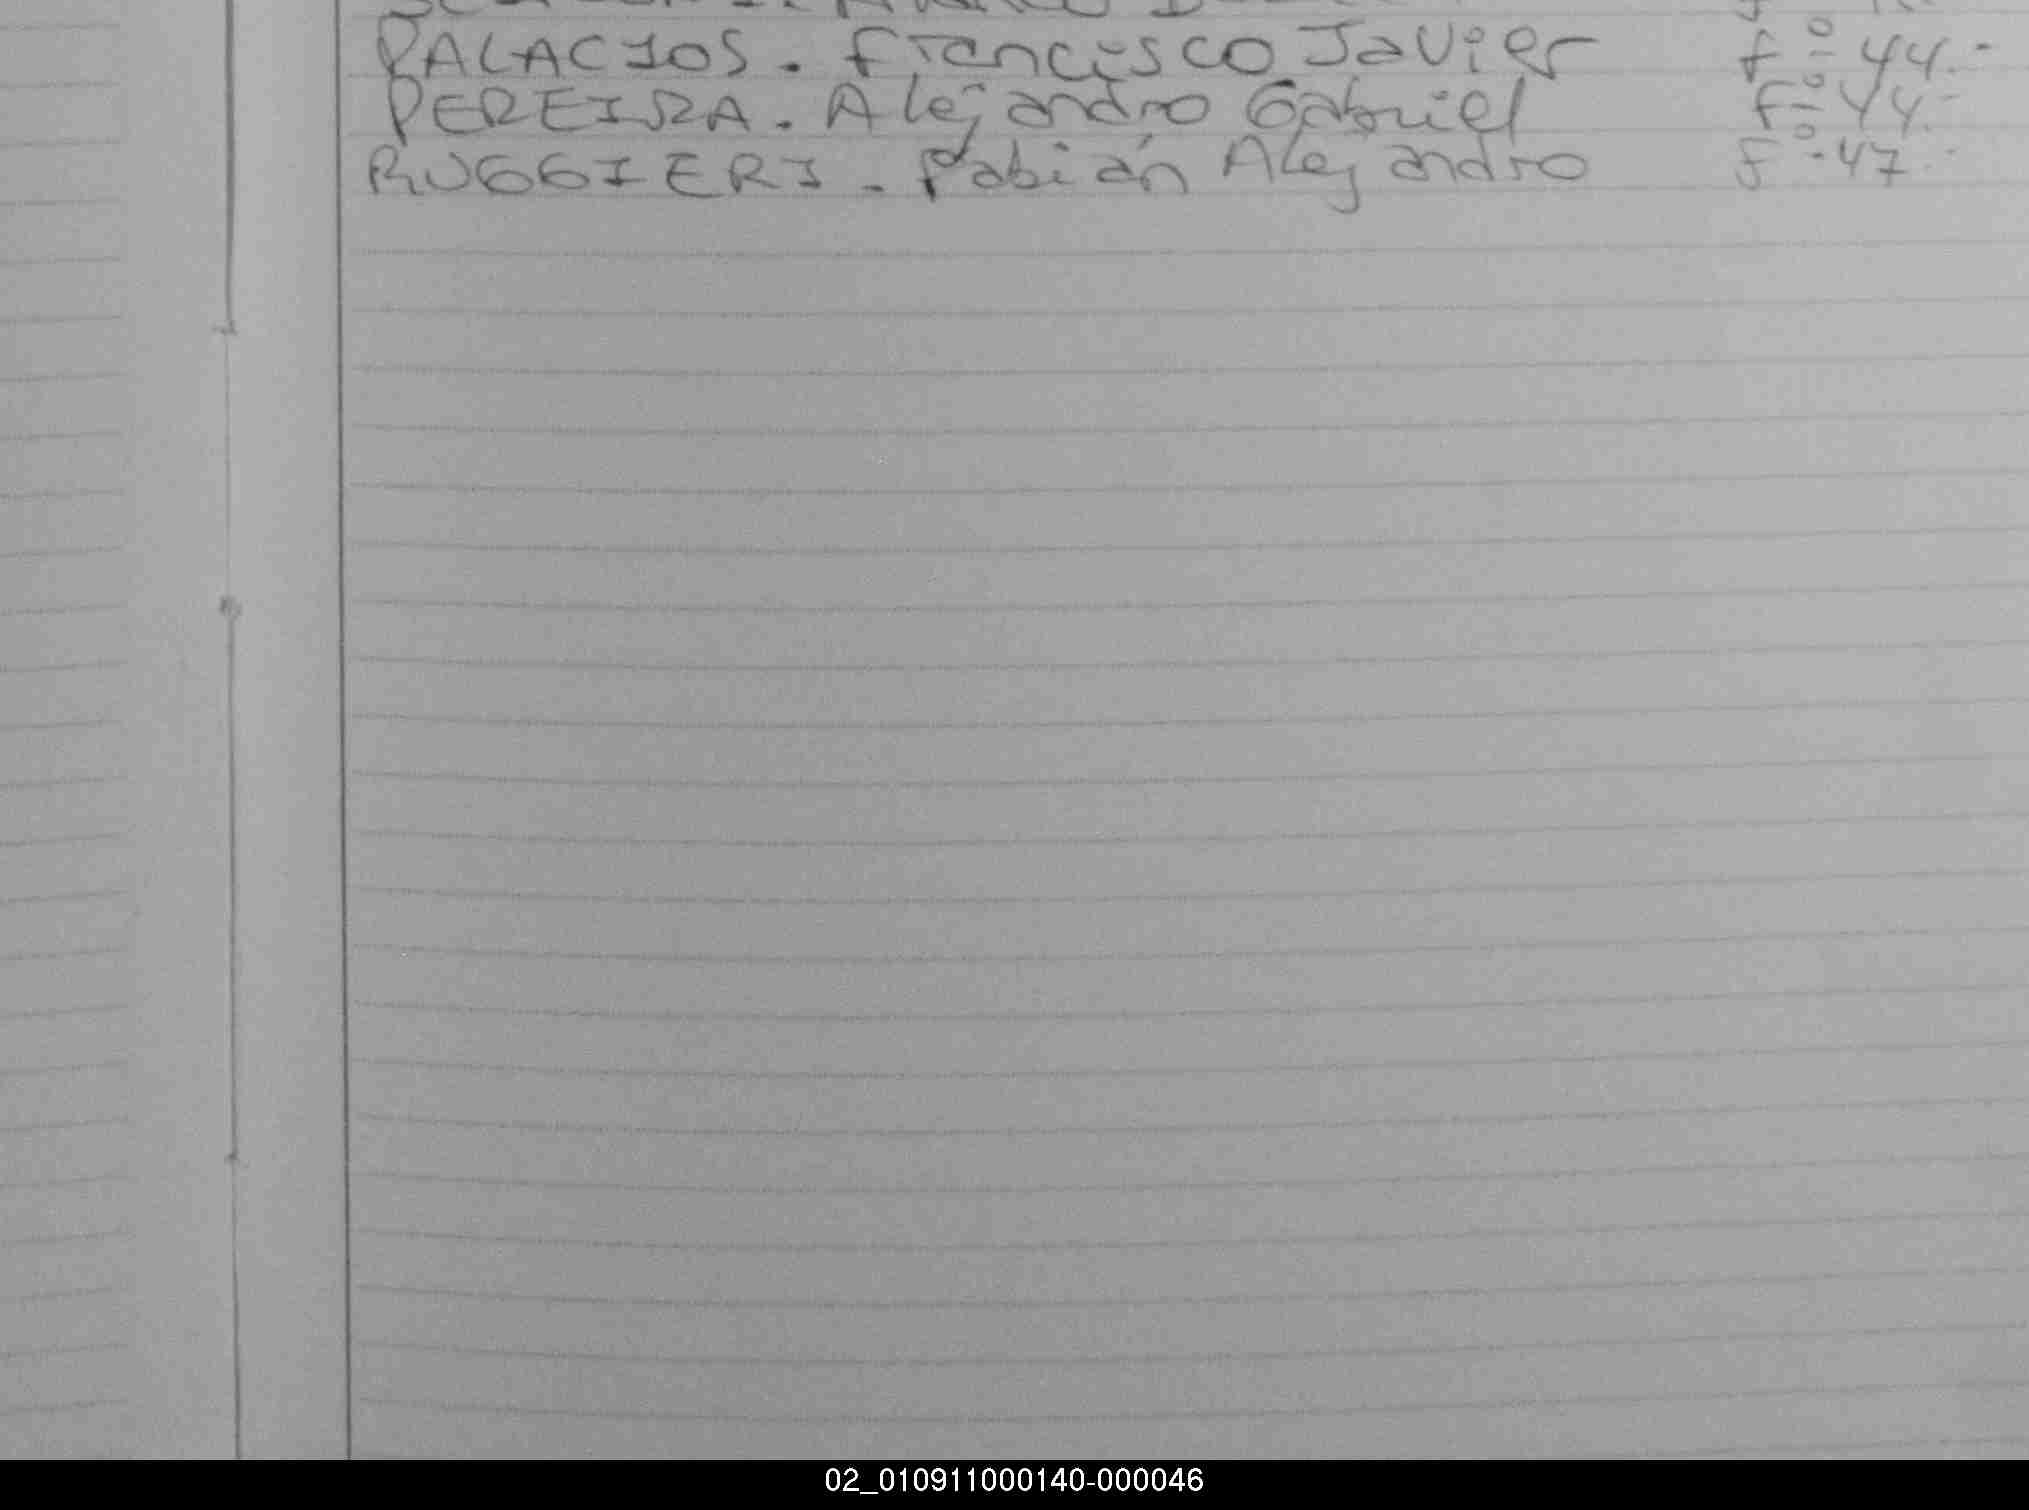 PALACIOS. Francisco Javier fº 44.-
PEREIRA. Alejandro Gabriel fº 44.-
RUGGIERI. Fabián Alejandro fº 47.-
02_010911000140-000046